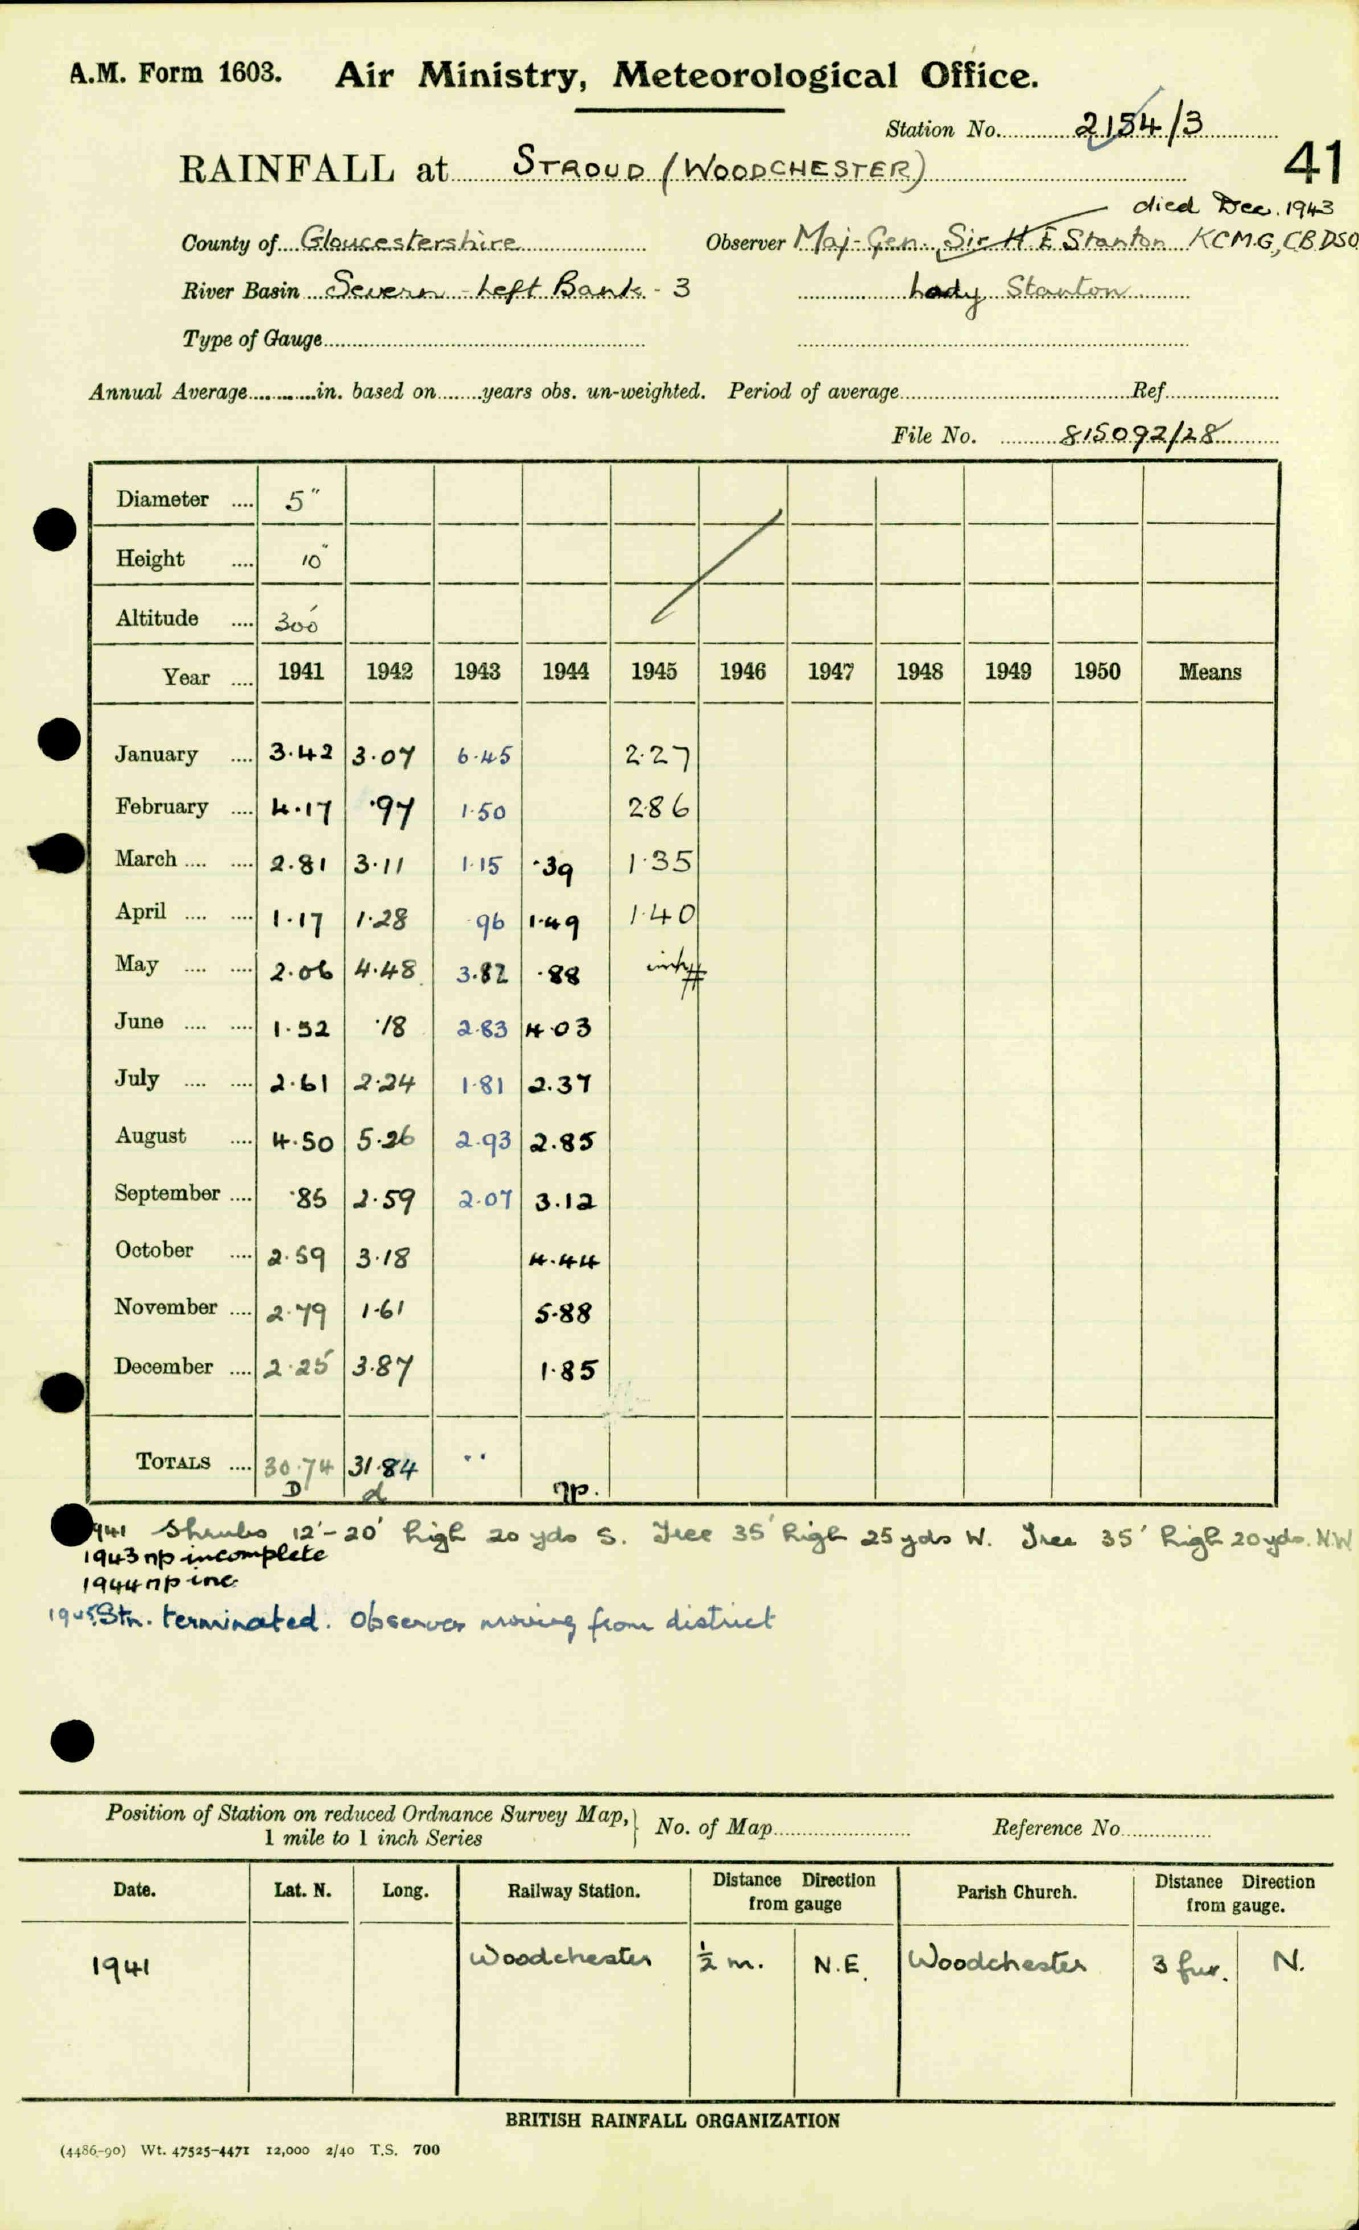 A.M. Form 1603. Air Ministry, Meteorological Office.
Station No. 2154/3
41
RAINFALL at STROUD (WOODCHESTER)
died Dec. 1943
County of Gloucestershire Observer Maj-Gen. Sir H E Stanton KCMG, CB DSO
River Basin Severn - Left Bank - 3 Lady Stanton
Type of Gauge
Annual Average in. based on years obs. un-weighted. Period of average Ref.
File No. 815092/28
Diameter 5"
Height 10"
Altitude 300'
Year 1941 1942 1943 1944 1945 1946 1947 1948 1949 1950 Means
January 3.42 3.07 6.45 2.27
February 4.17 .97 1.50 2.86
March 2.81 3.11 1.15 .39 1.35
April 1.17 1.28 .96 1.49 1.40
May 2.06 4.48 3.82 .88
June 1.52 .18 2.83 4.03
July 2.61 2.24 1.81 2.37
August 4.50 5.26 2.93 2.85
September .85 2.59 2.07 3.12
October 2.59 3.18 4.44
November 2.79 1.61 5.88
December 2.25 3.87 1.85
TOTALS 30.74 31.84 ..
D d np.
1941 Shrubs 12'-20' high 20 yds S. Tree 35' high 25 yds W. Tree 35' high 20 yds. N.W
1943 np incomplete
1944 np inc.
1945 Stn. terminated. Observer moving from district
Position of Station on reduced Ordnance Survey Map, No. of Map Reference No
1 mile to 1 inch Series
Date. Lat. N. Long. Railway Station. Distance Direction from gauge Parish Church. Distance Direction from gauge.
1941 Woodchester ½ m. N.E. Woodchester 3 fur. N.
BRITISH RAINFALL ORGANIZATION
(4486-90) Wt. 47525-4471 12,000 2/40 T.S. 700